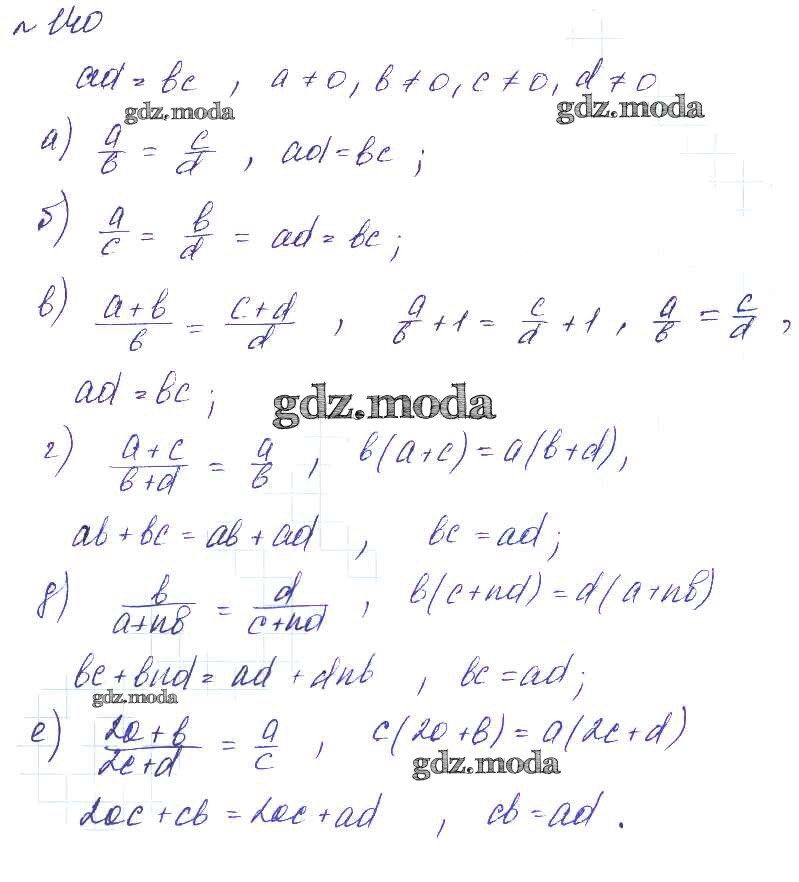 № 140
ad = bc , a ≠ 0, b ≠ 0, c ≠ 0, d ≠ 0
gdz.moda gdz.moda
а) a/b = c/d , ad = bc ;
б) a/c = b/d = ad = bc ;
в) (a+b)/b = (c+d)/d , a/b + 1 = c/d + 1 , a/b = c/d ,
ad = bc ;
gdz.moda
г) (a+c)/(b+d) = a/b , b(a+c) = a(b+d),
ab + bc = ab + ad , bc = ad ;
д) b/(a+nb) = d/(c+nd) , b(c+nd) = d(a+nb)
bc + bnd = ad + dnb , bc = ad ;
gdz.moda
е) (2a+b)/(2c+d) = a/c , c(2a+b) = a(2c+d)
gdz.moda
2ac + cb = 2ac + ad , cb = ad .